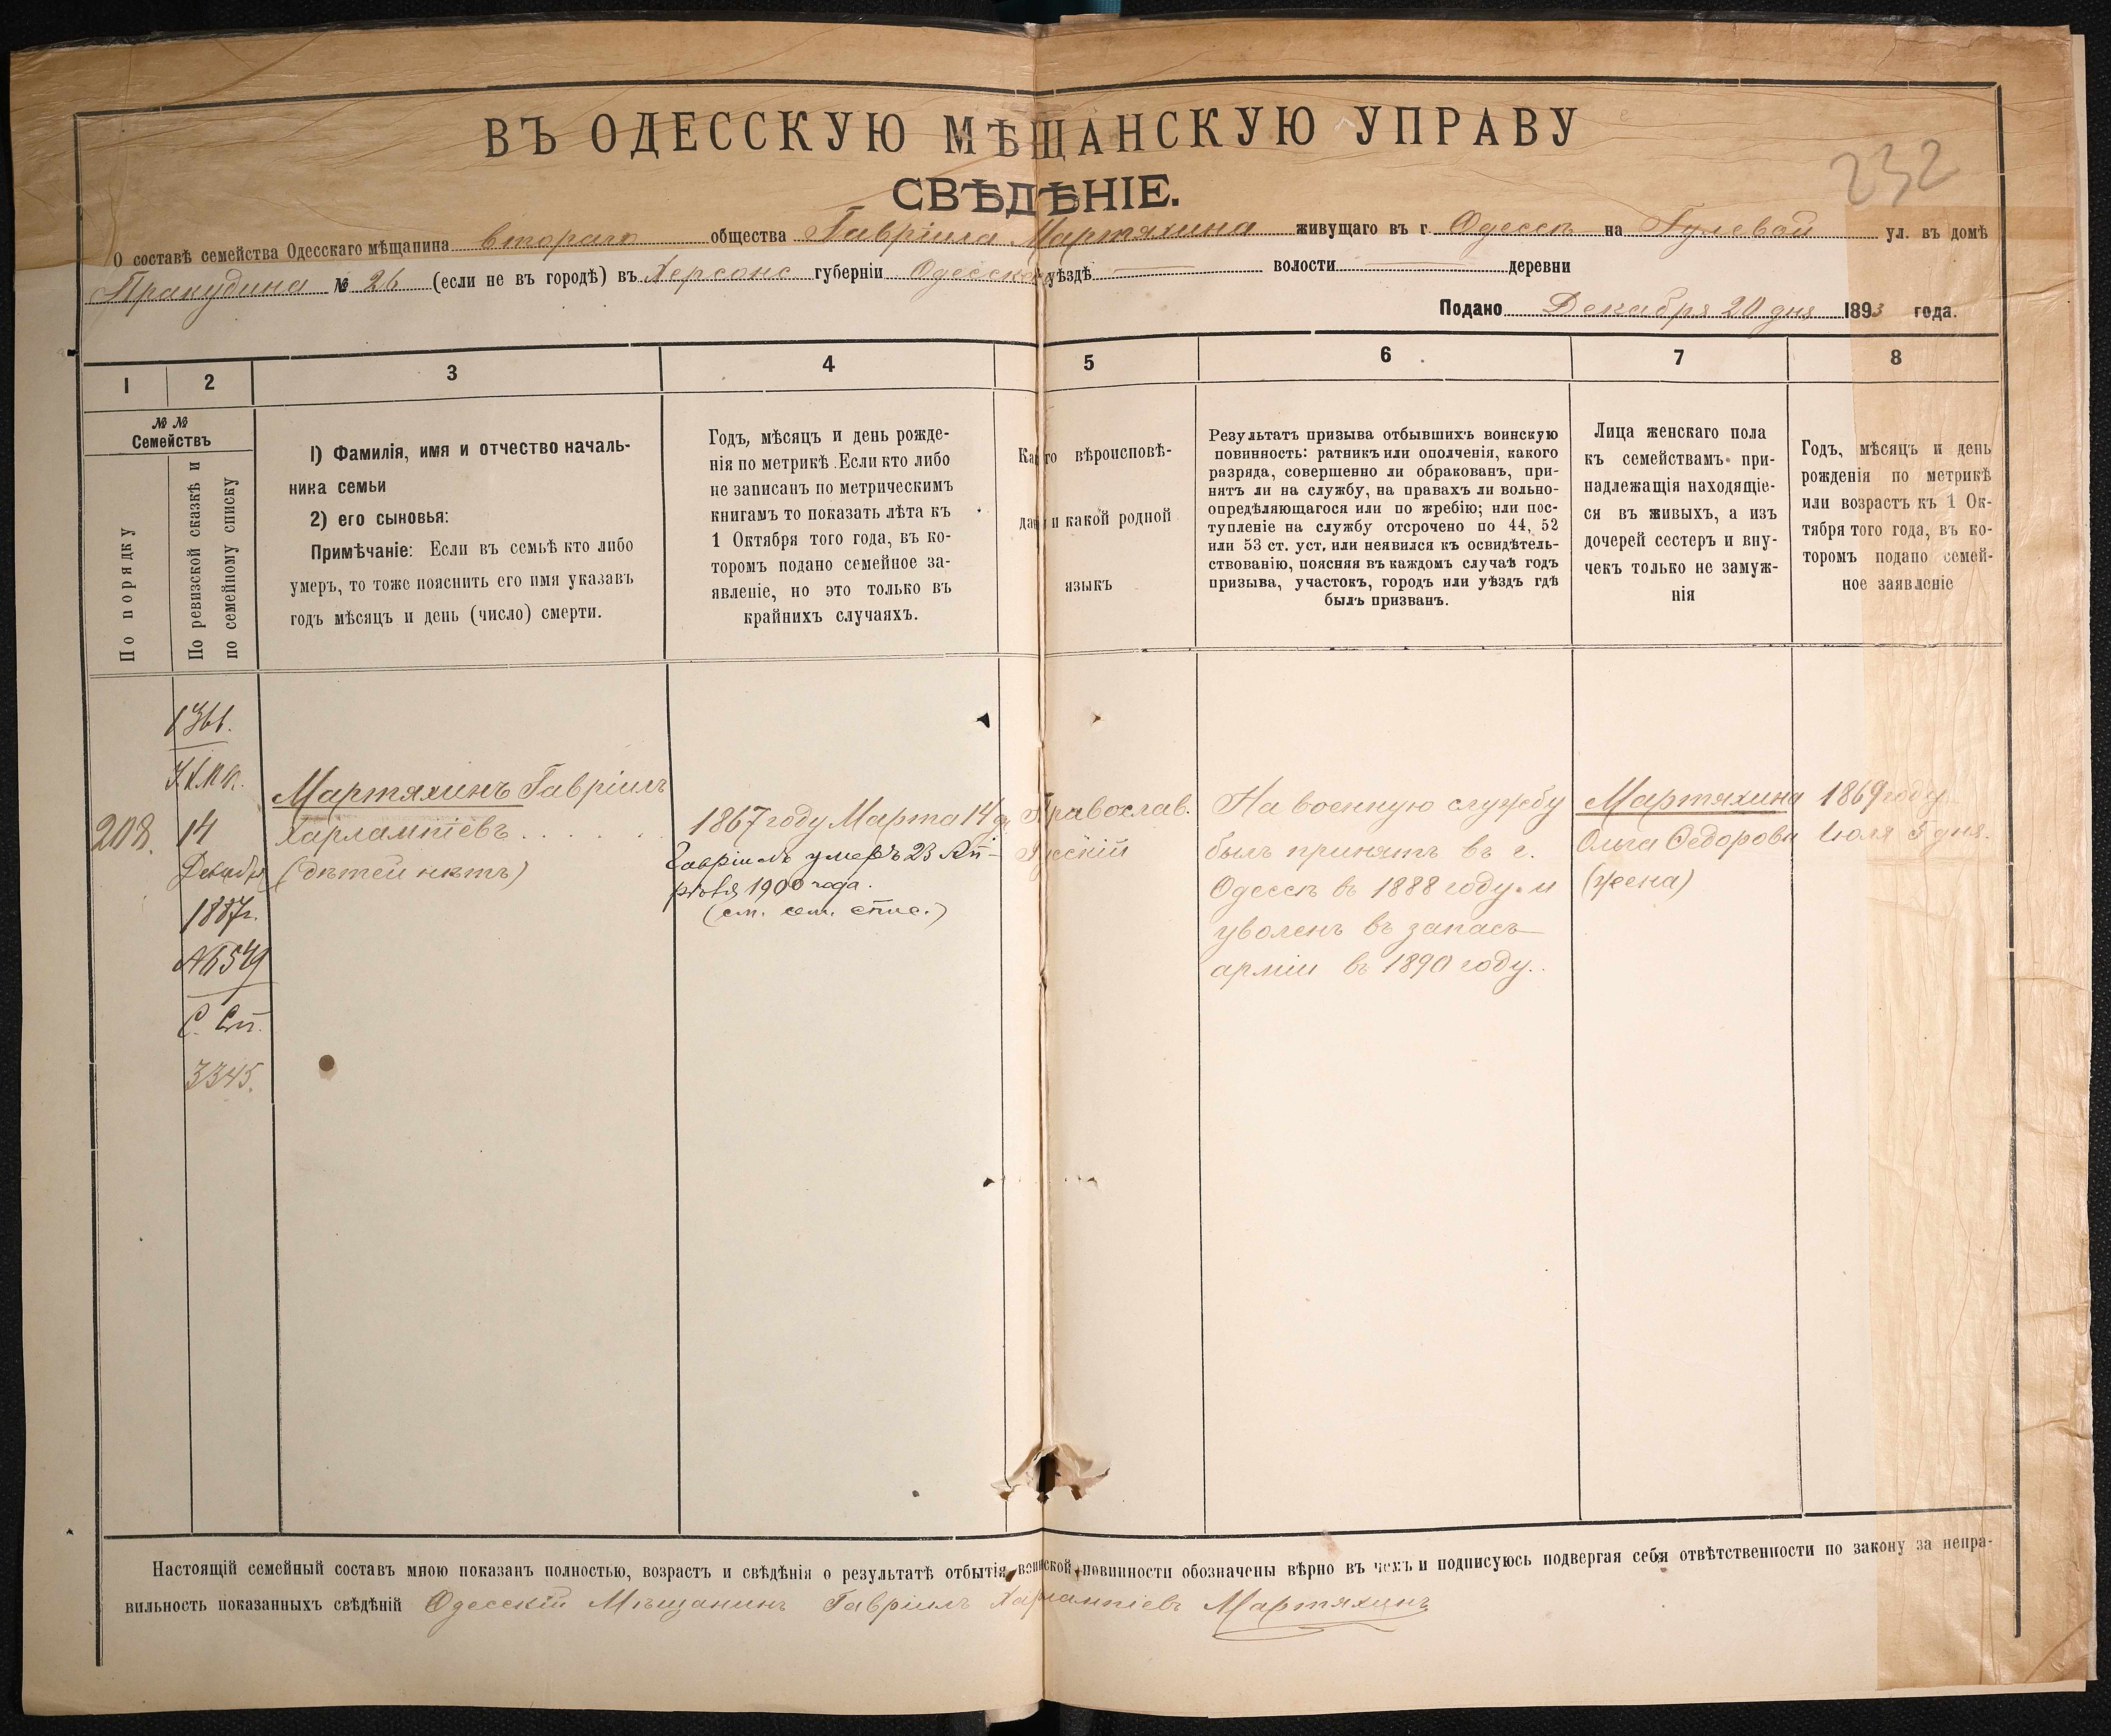 232
ВЪ ОДЕССКУЮ МѢЩАНСКУЮ УПРАВУ
СВѢДѢНІЕ.
О составѣ семейства Одесскаго мѣщанина второго общества Гавріила Мартяхина живущаго въ г. Одессѣ на Гулевой ул. въ домѣ
Пракудина № 26 (если не въ городѣ) въ Херсонс губерніи Одесском уѣздѣ волости деревни
Подано Декабря 20 дня 1893 года.
1 2 3 4 5 6 7 8
№ №
Семействъ
По порядку
По ревизской сказкѣ и
по семейному списку
1) Фамилія, имя и отчество началь-
ника семьи
2) его сыновья:
Примѣчаніе: Если въ семьѣ кто либо
умеръ, то тоже пояснить его имя указавъ
годъ мѣсяцъ и день (число) смерти.
Годъ, мѣсяцъ и день рожде-
нія по метрикѣ .Если кто либо
не записанъ по метрическимъ
книгамъ то показать лѣта къ
1 Октября того года, въ ко-
торомъ подано семейное за-
явленіе, но это только въ
крайнихъ случаяхъ.
вѣроисповѣ-
и какой родной
языкъ
Результатъ призыва отбывшихъ воинскую
повинность: ратникъ или ополченія, какого
разряда, совершенно ли обракованъ, при-
нятъ ли на службу, на правахъ ли вольно-
опредѣляющагося или по жребію; или пос-
тупленіе на службу отсрочено по 44, 52
или 53 ст. уст, или неявился къ освидѣтель-
ствованію, поясняя въ каждомъ случаѣ годъ
призыва, участокъ, городъ или уѣздъ гдѣ
былъ призванъ.
Лица женскаго пола
къ семействамъ при-
надлежащія находящіе-
ся въ живыхъ, а изъ
дочерей сестеръ и вну-
чекъ только не замуж-
нія
Годъ, мѣсяцъ и день
рожденія по метрикѣ
или возрастъ къ 1 Ок-
тября того года, въ ко-
торомъ подано семей-
ное заявленіе
208.
1366.
14
Декабря
1887г.
№6549
С. Сп.
3345.
Мартяхинъ Гавріилъ
Харлампіевъ
(дѣтей нѣтъ)
1867 году Марта 14 д.
Гавріилъ умеръ 23 Ап-
рѣля 1900 года.
(см. сем. спис.)
Православ.
Русскій
На военную службу
былъ принятъ въ г.
Одессѣ въ 1888 году и
уволенъ въ запасъ
арміи въ 1890 году.
Мартяхина
Ольга Ѳедоровн
(жена)
1869 году
Іюля 5 дня.
Настоящій семейный составъ мною показанъ полностью, возрастъ и свѣдѣнія о результатѣ отбытія воинской повинности обозначены вѣрно въ чемъ и подписуюсь подвергая себя отвѣтственности по закону за непра-
вильность показанныхъ свѣдѣній Одесскій Мѣщанинъ Гавріилъ Харлампіевъ Мартяхинъ